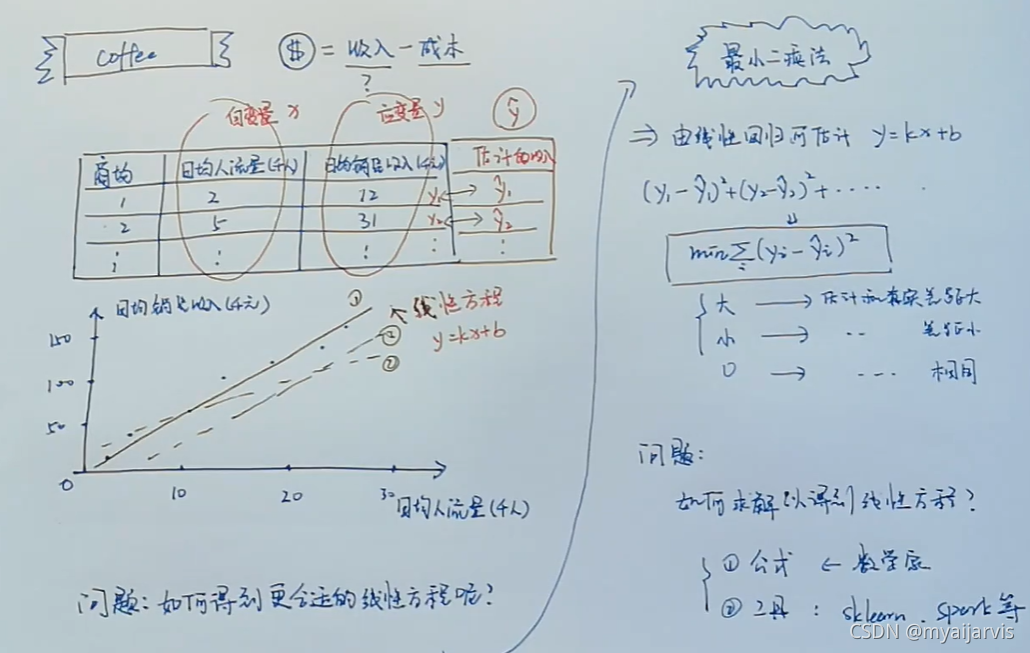 coffee
$ = 收入 - 成本
?
自变量 x 应变量 y ŷ
商场 日均人流量(千人) 日均销售收入(千元) 估计的收入
1 2 12 y₁ ↔ ŷ₁
2 5 31 y₂ ↔ ŷ₂
⋮ ⋮ ⋮ ⋮ ⋮
日均销售收入(千元)
① 线性方程
y=kx+b
②
②
150
100
50
0 10 20 30
日均人流量(千人)
问题: 如何得到更合适的线性方程呢?
最小二乘法
⇒ 由线性回归可估计 y=kx+b
(y₁-ŷ₁)²+(y₂-ŷ₂)²+····
min∑ᵢ(yᵢ-ŷᵢ)²
大 → 估计和真实差距大
小 → ·· 差距小
0 → --- 相同
问题:
如何求解以得到线性方程?
① 公式 ← 数学家
② 工具: sklearn. spark等
CSDN @myaijarvis